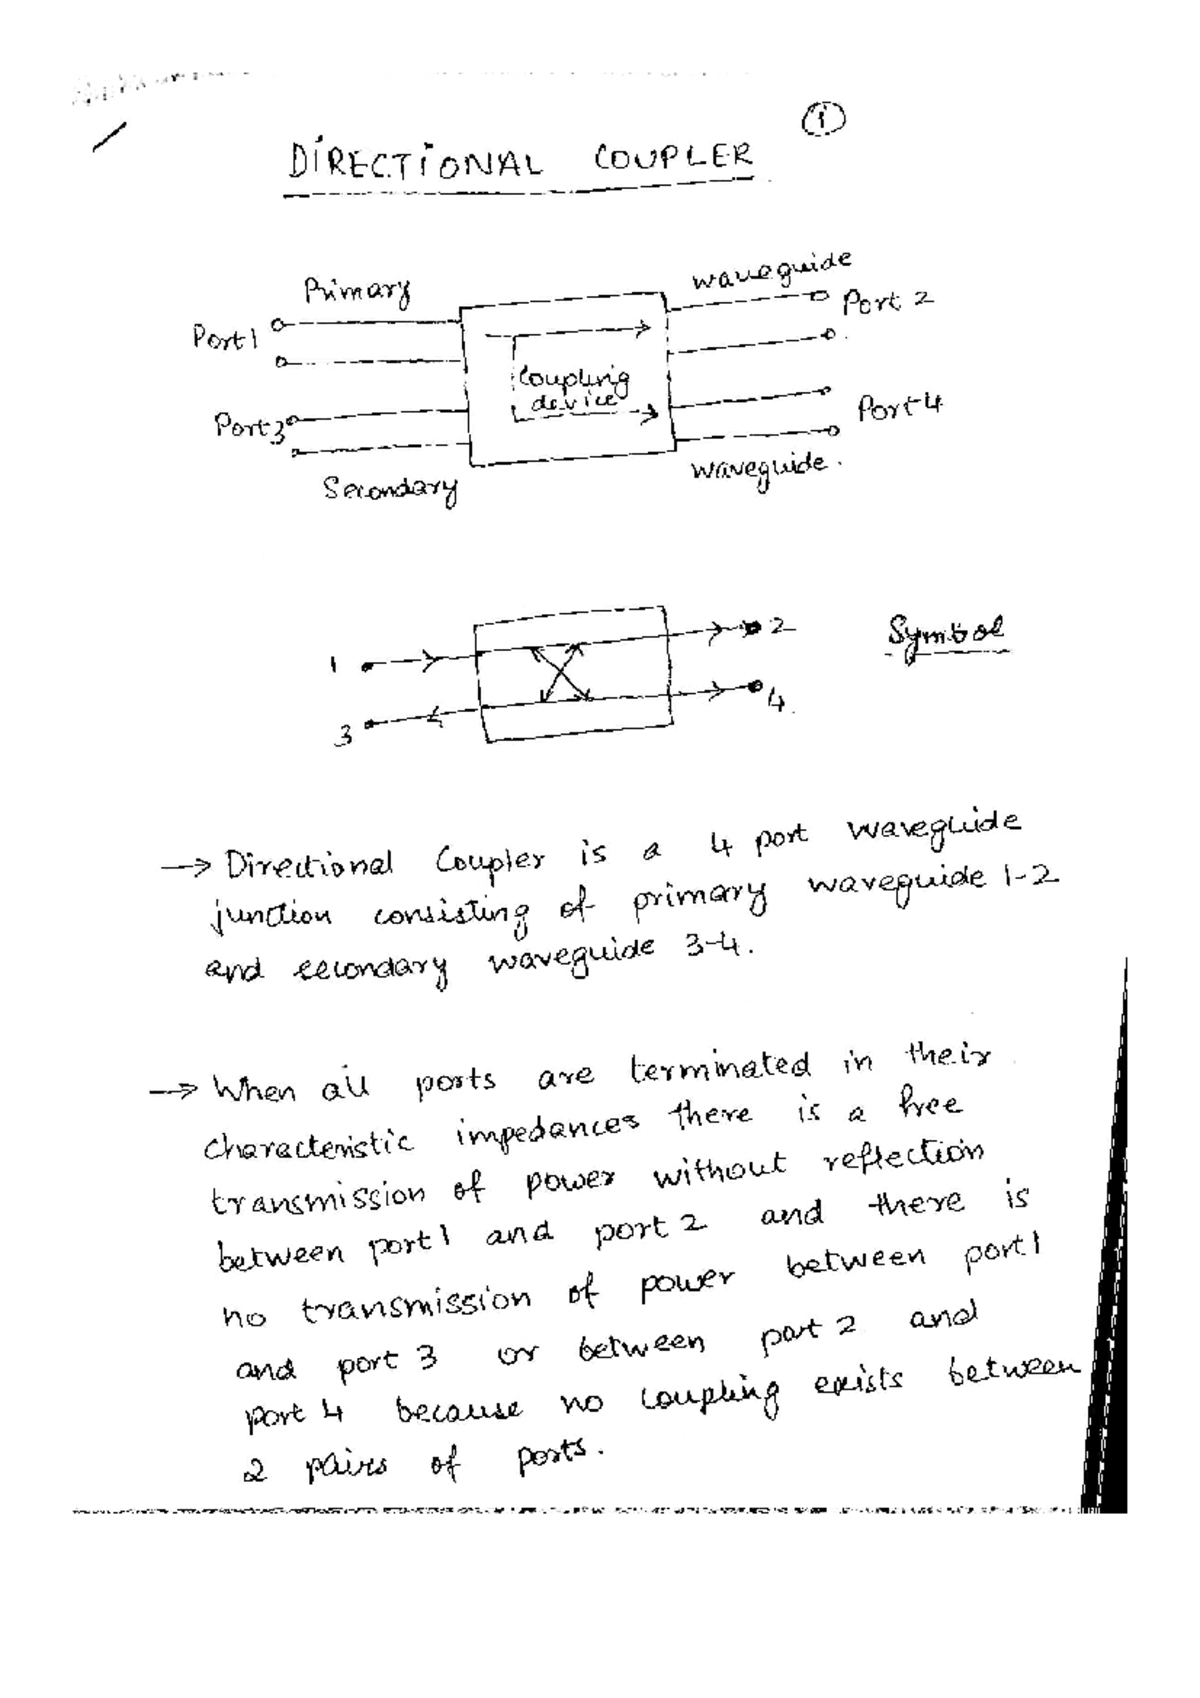 1
DIRECTIONAL COUPLER
Primary
waveguide
Port 1
Port 2
Coupling
device
Port 3
Port 4
Secondary
waveguide.
1
2
Symbol
3
4.
→ Directional Coupler is a 4 port waveguide
junction consisting of primary waveguide 1-2
and secondary waveguide 3-4.
→ When all ports are terminated in their
characteristic impedances there is a free
transmission of power without reflection
between port 1 and port 2 and there is
no transmission of power between port 1
and port 3 or between port 2 and
port 4 because no coupling exists between
2 pairs of ports.